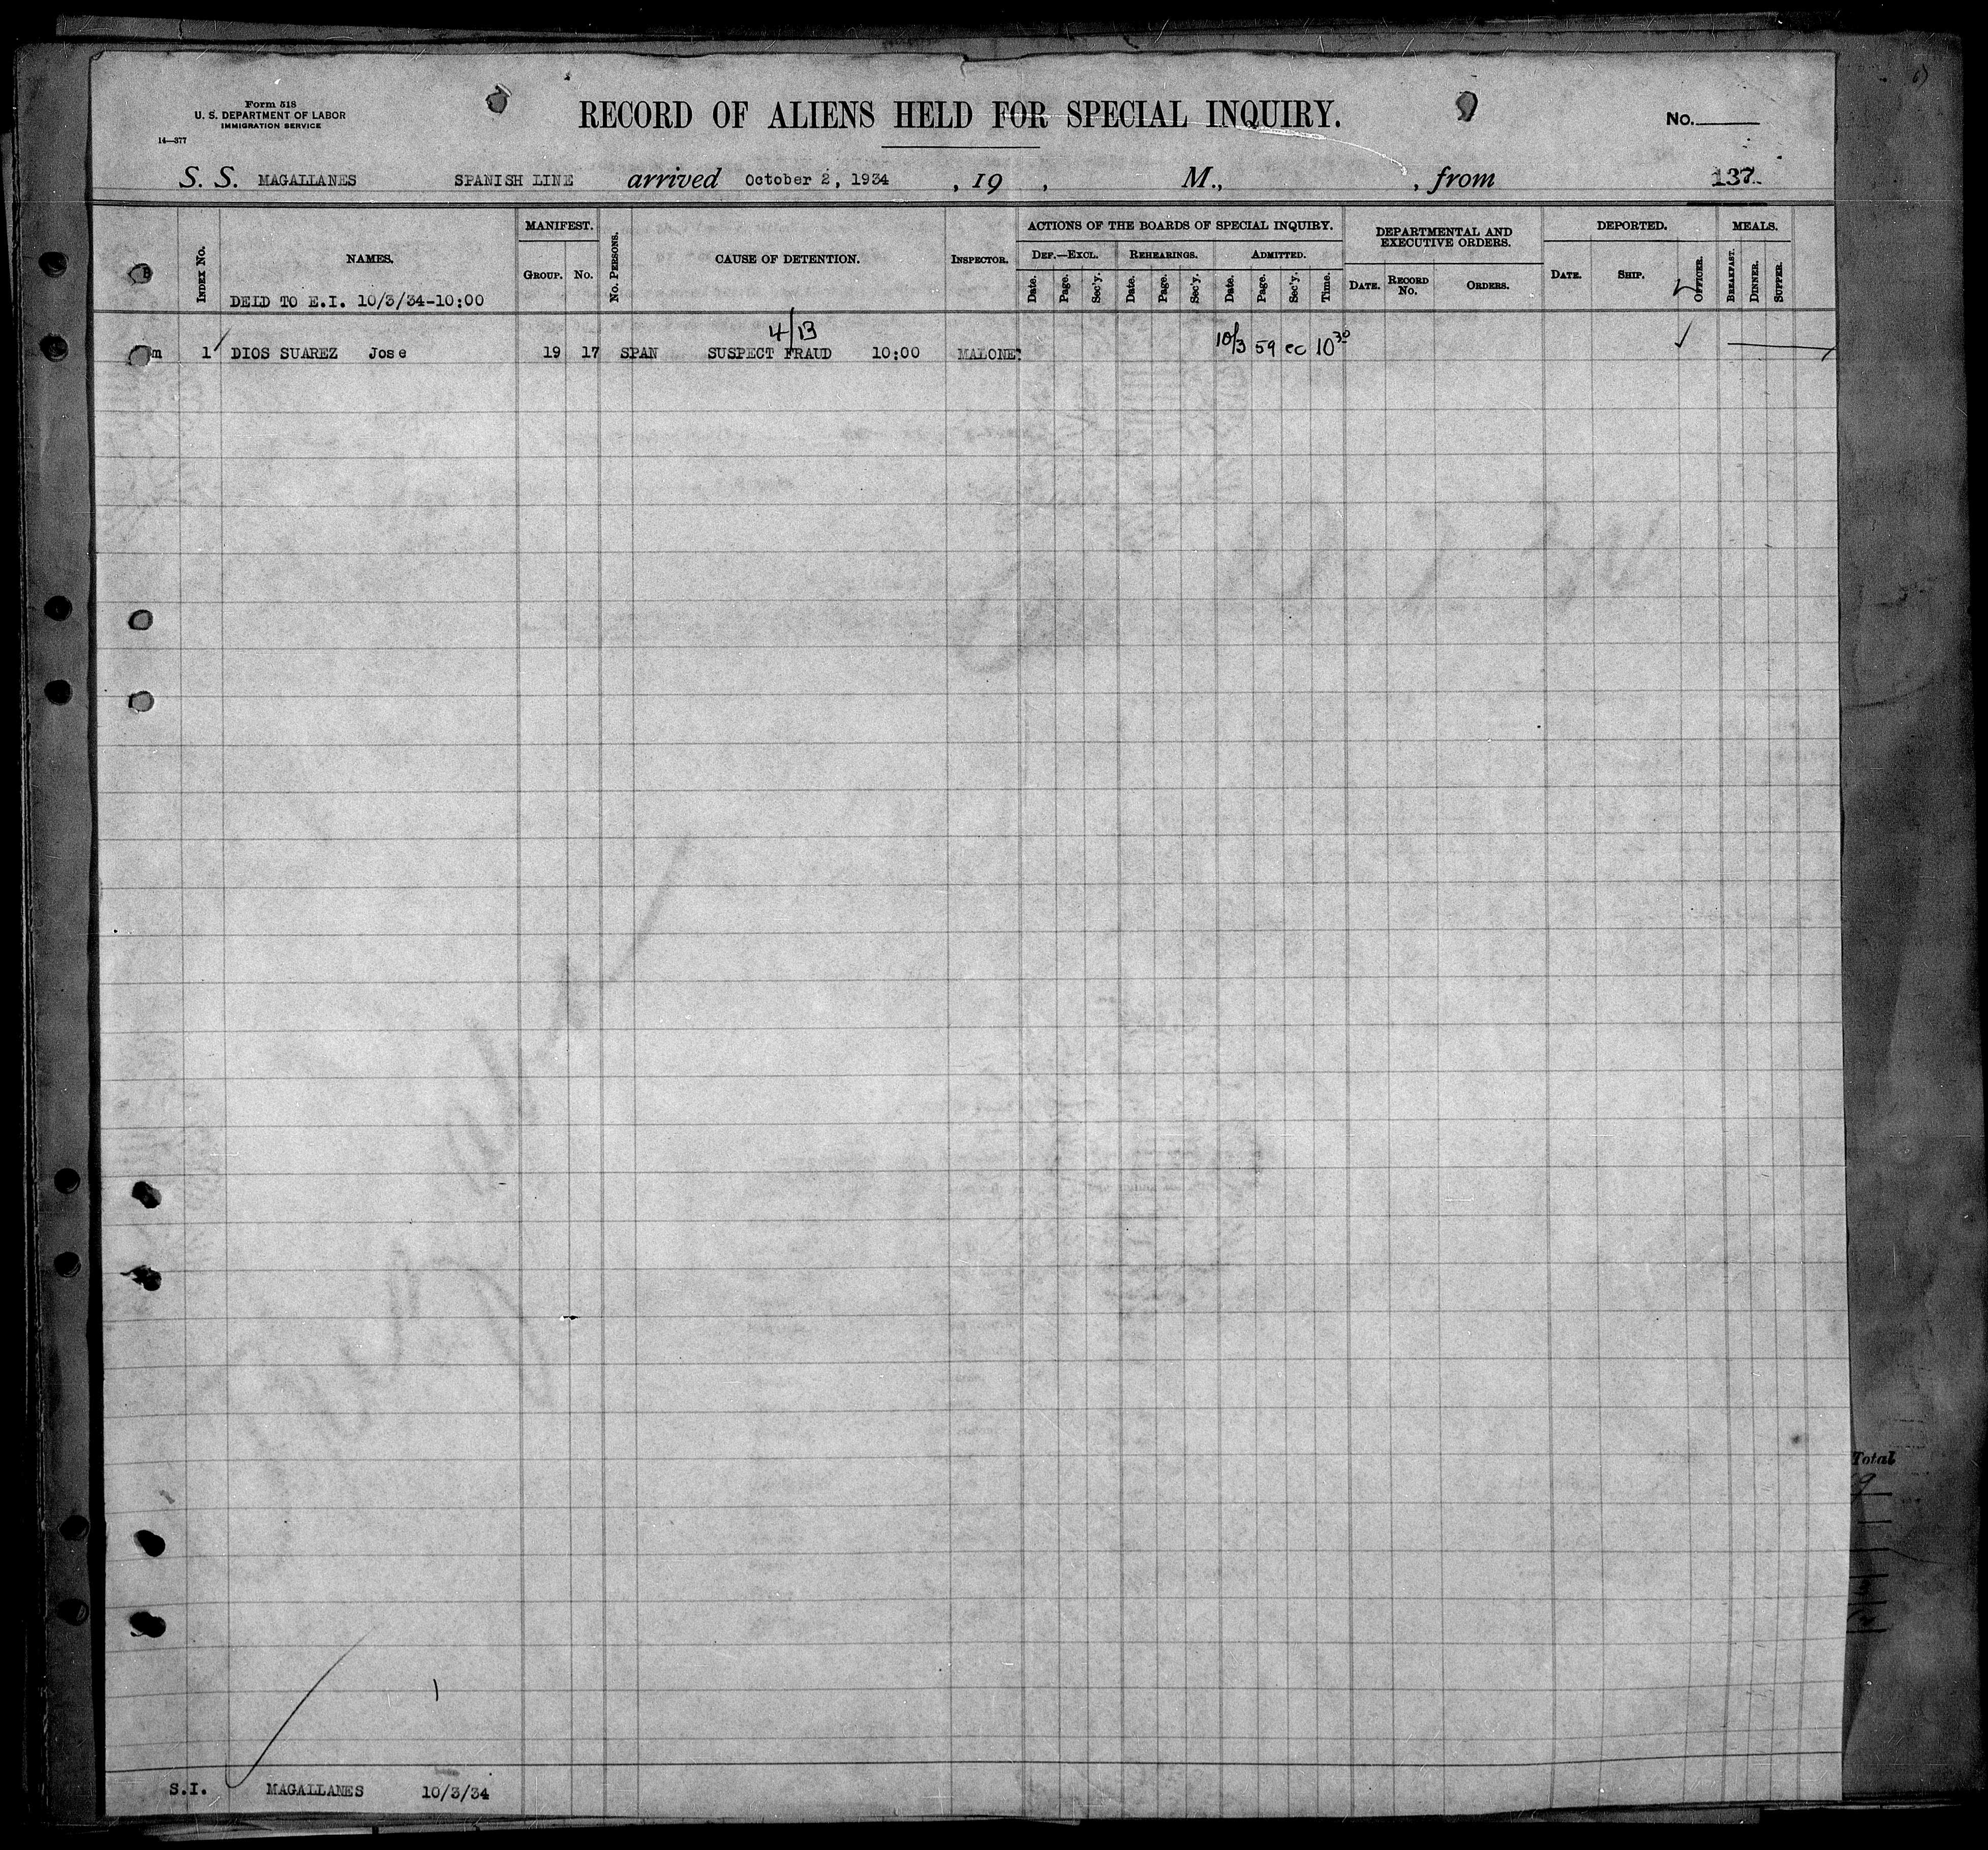 Form 518
U. S. DEPARTMENT OF LABOR
IMMIGRATION SERVICE
14—377
RECORD OF ALIENS HELD FOR SPECIAL INQUIRY.
No.
S. S. MAGALLANES SPANISH LINE arrived October 2, 1934 , 19 , M., , from 137
INDEX No.
NAMES.
DELD TO E.I. 10/3/34-10:00
MANIFEST.
GROUP. No.
No. PERSONS.
CAUSE OF DETENTION.
INSPECTOR.
ACTIONS OF THE BOARDS OF SPECIAL INQUIRY.
DEF.—EXCL. REHEARINGS. ADMITTED.
Date. Page. Sec'y. Date. Page. Sec'y. Date. Page. Sec'y. Time.
DEPARTMENTAL AND EXECUTIVE ORDERS.
DATE. RECORD No. ORDERS.
DEPORTED.
DATE. SHIP. OFFICER.
MEALS.
BREAKFAST. DINNER. SUPPER.
4/13
m 1 DIOS SUAREZ Jose 19 17 SPAN SUSPECT FRAUD 10:00 MALONE 10/3 59 ec 10 30
Total
1
S.I. MAGALLANES 10/3/34